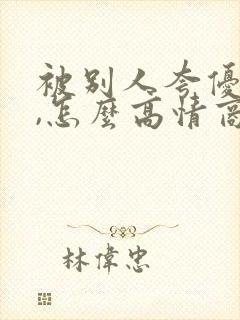 被別人夸優
,怎麼高情商
林偉忠